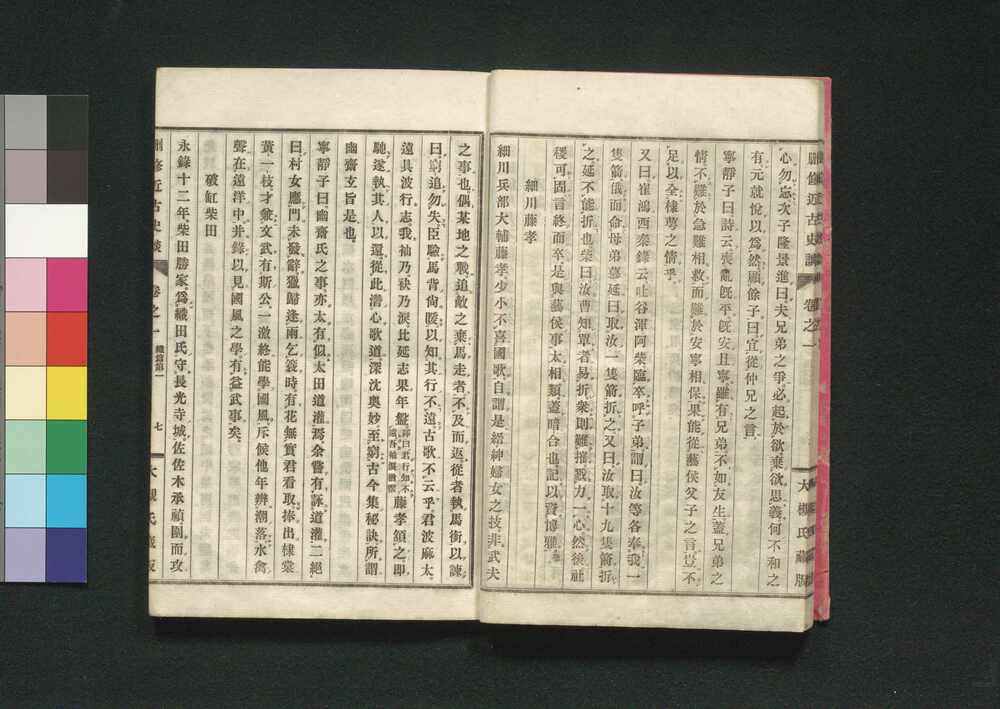 刪修近古史談 卷之一 大槻氏藏版
心勿忘次子隆景進曰夫兄弟之爭必起於欲棄欲思義何不和之
有元就悅以爲然顧餘子曰宜從仲兄之言
寧靜子曰詩云喪亂既平既安且寧雖有兄弟不如友生蓋兄弟之
情不難於急難相救而難於安寧相保果能從藝侯父子之言豈不
足以全棣萼之情乎
又曰崔鴻西秦錄云吐谷渾阿柴臨卒呼子弟謂曰汝等各奉我一
隻箭俄而命母弟慕延曰取汝一隻箭折之又曰汝取十九隻箭折
之延不能折也柴曰汝曹知單者易折衆則難摧戮力一心然後社
稷可固言終而卒是與藝侯事太相類蓋暗合也記以資博雅
細川藤孝
細川兵部大輔藤孝少小不喜國歌自謂是縉紳婦女之技非武夫
之事也偶某地之戰追敵之棄馬走者不及而返從者執馬銜以諫
曰窮追勿失臣驗馬背尙暖以知其行不遠古歌不云乎君波麻太
遠具波行志我袖乃袂乃淚比延志果年盤 藤孝頷之即
馳遂執其人以還從此潛心歌道深沈奧妙至窮古今集秘訣所謂
幽齋玄旨是也
寧靜子曰幽齋氏之事亦太有似太田道灌焉余嘗有詠道灌二絕
曰村女應門未發辭獵歸逢雨乞簑時有花無實君看取捧出棣棠
黃一枝才兼文武有斯公一激終能學國風斥候他年辨潮落水禽
聲在遠洋中并錄以見國風之學有益武事矣
破缸柴田
永錄十二年柴田勝家爲織田氏守長光寺城佐佐木承禎圍而攻
刪修近古史談 卷之一 織篇第一 七 大槻氏藏版